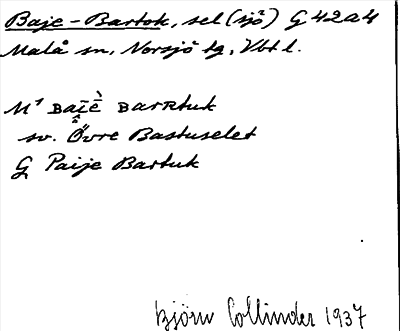 Baje-Bartok, sel (sjö) G 42a4
Malå sn, Norsjö tg, Vbt l.
M¹ BAI̯È BARRtuk
sv. Övre Bastuselet
G Paije Bartuk
Björn Collinder 1937